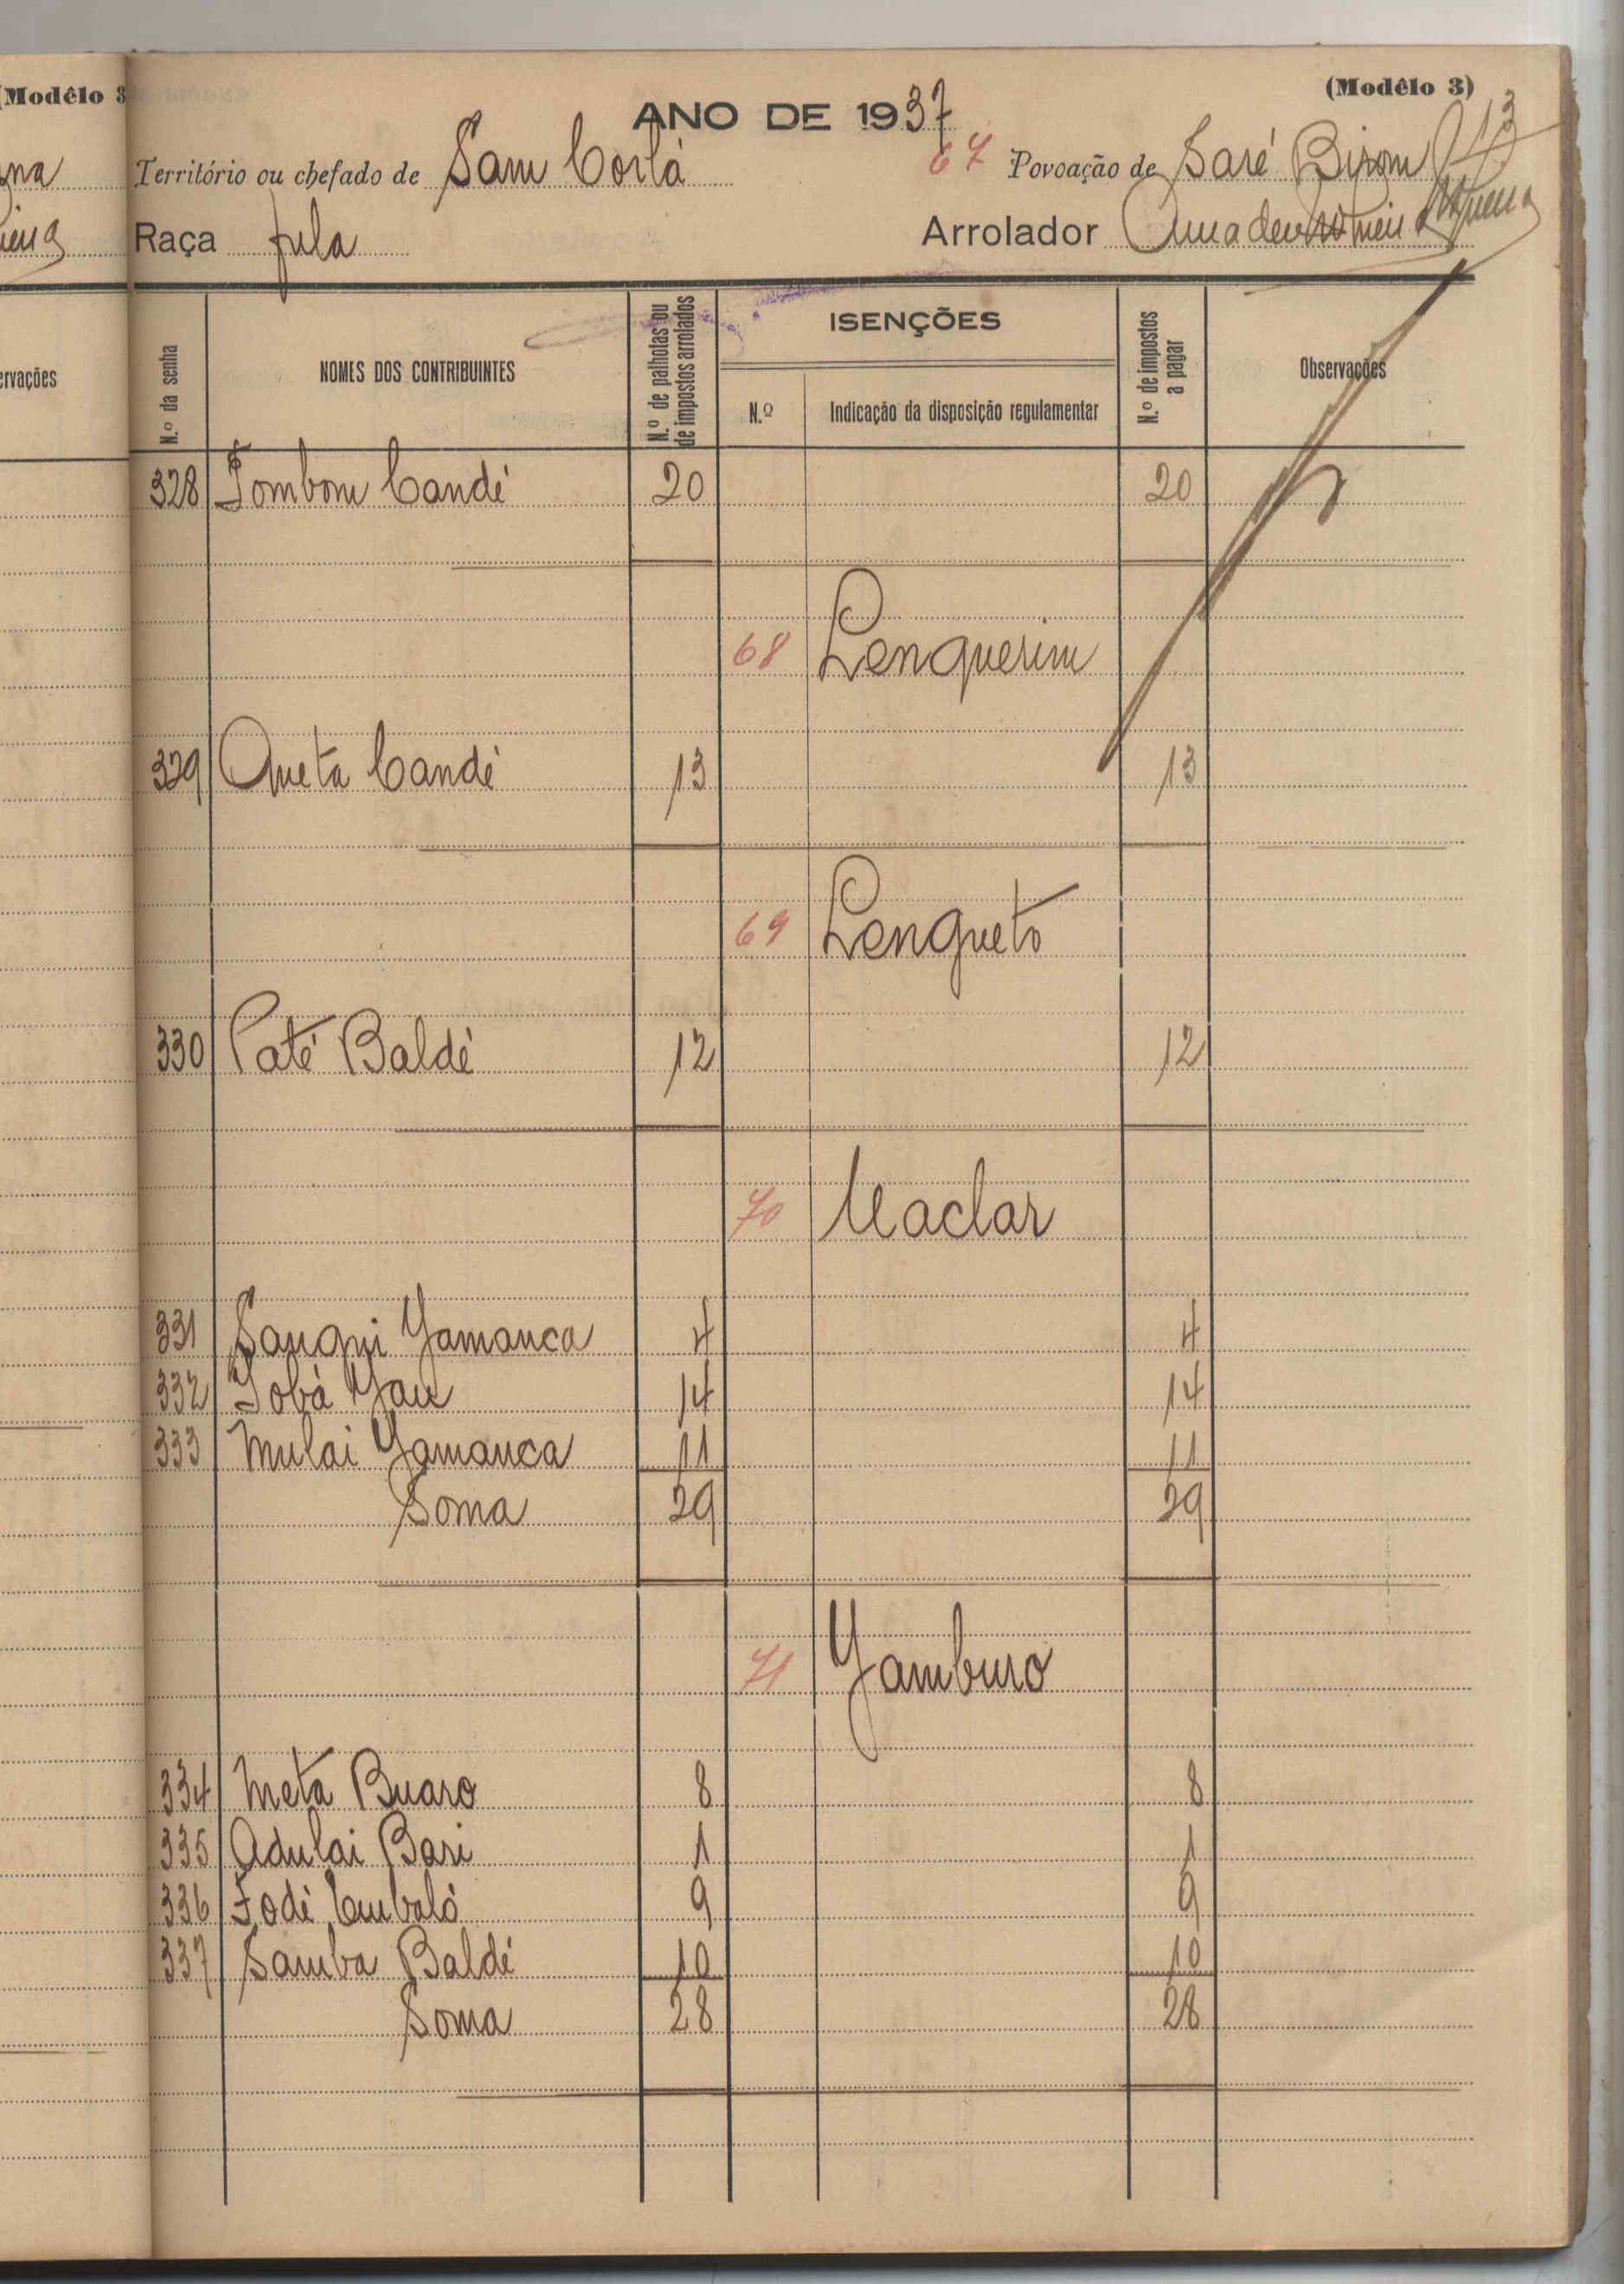 (Modêlo 3
(Modêlo 3)
ANO DE 1937
13
Território ou chefado de Sam Corlá
67 Povoação de Saré Birom
Raça fula
Arrolador Amadeu
ervações
N.º da senha
NOMES DOS CONTRIBUINTES
N.º de palhotas ou de impostos arrolados
ISENÇÕES
N.º
Indicação da disposição regulamentar
N.º de impostos a pagar
Observações
328 Tombom Candé 20 20
68 Lenquerim
329 Queta Candé 13 13
69 Lenqueto
330 Paté Baldé 12 12
70 Uaclar
331 Sanqui Jamanca 4 4
332 Jobá Jau 14 14
333 Mulai Jamanca 11 11
Soma 29 29
71 Jamburo
334 Meta Buaro 8 8
335 Adulai Bari 1 1
336 Fodé Embaló 9 9
337 Samba Baldé 10 10
Soma 28 28